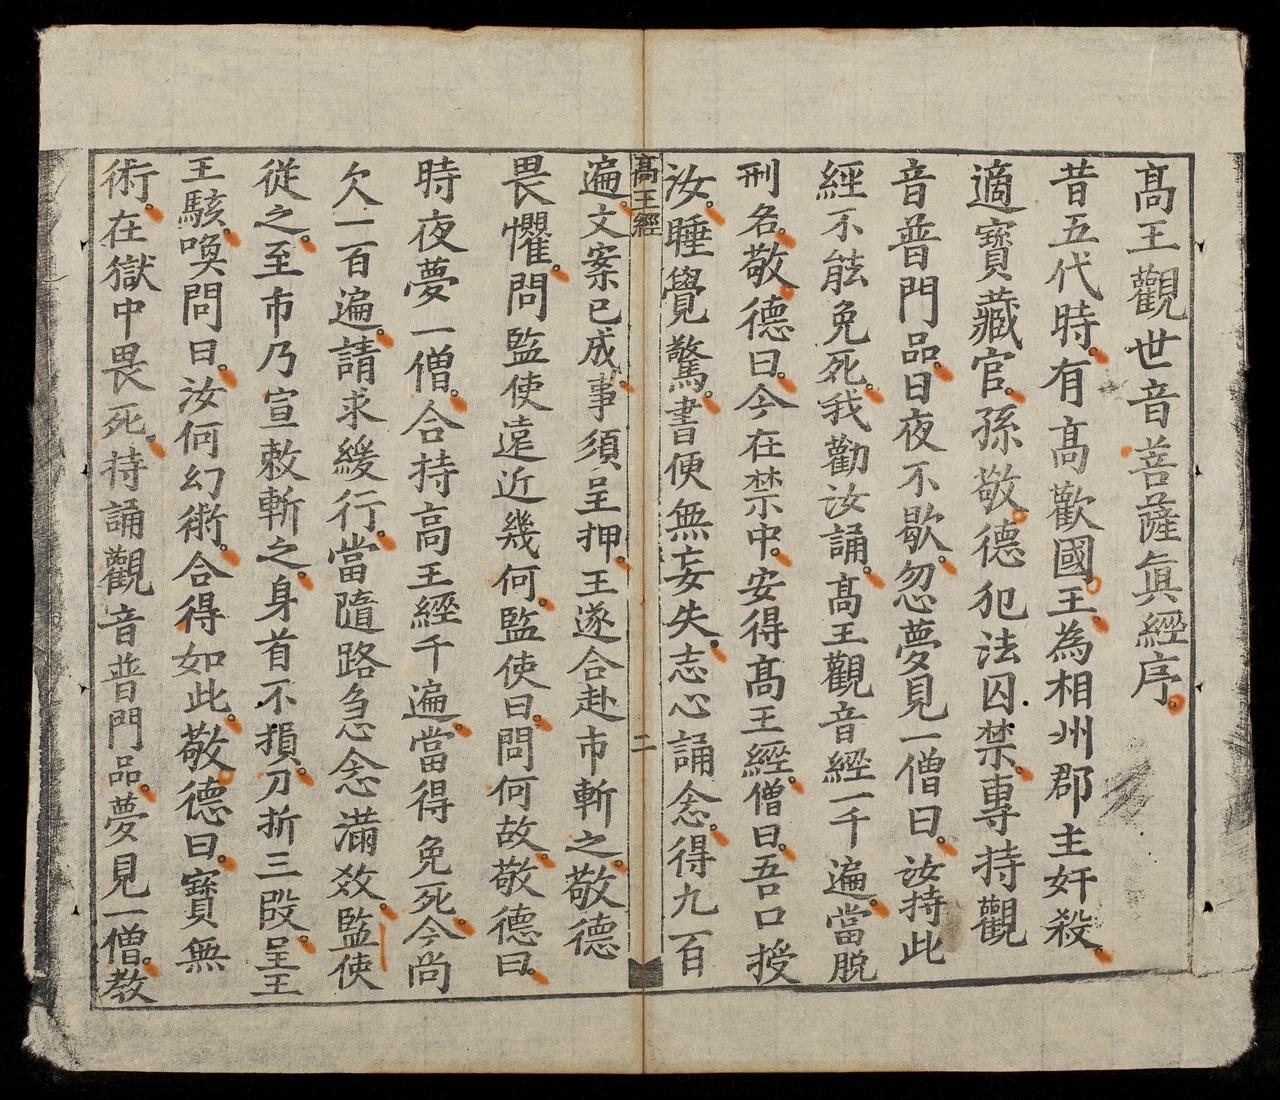 髙王觀世音菩薩眞經序。
昔五代時。有髙歡國王。為相州郡主奸殺。
適寳藏官。孫敬德犯法囚禁。專持觀
音普門品。日夜不歇。忽夢見一僧曰。汝持此
經不能免死。我勸汝誦。髙王觀音經一千遍。當脱
刑名。敬德曰。今在禁中。安得髙王經。僧曰。吾口授
汝。睡覺驚。書便無妄失。志心誦念。得九百
髙王經
二
遍。文案已成。事須呈押。王遂合赴市斬之。敬德
畏懼。問監使遠近幾何。監使曰。問何故。敬德曰。
時夜夢一僧。合持高王經千遍。當得免死。今尚
欠一百遍。請求緩行。當隨路急念滿数。監使
從之。至市乃宣敕斬之。身首不損。刀折三段。呈王
王駭。喚問曰。汝何幻術。合得如此。敬德曰。寳無
術。在獄中畏死。持誦觀音普門品。夢見一僧。教